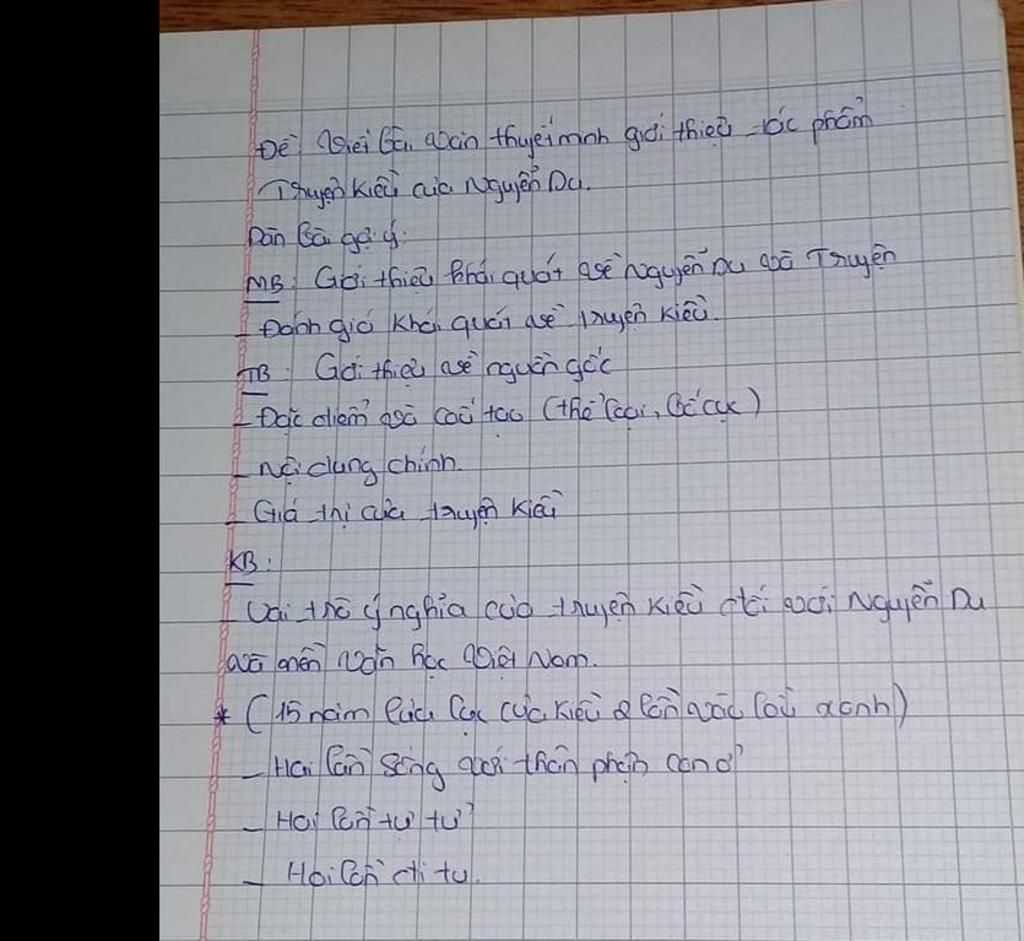 Đề: Viết bài văn thuyết minh giới thiệu tác phẩm
Truyện Kiều của Nguyễn Du.
Dàn bài gợi ý:
MB: Giới thiệu khái quát về Nguyễn Du và Truyện
- Đánh giá khái quát về truyện Kiều.
TB: Giới thiệu về nguồn gốc
- Đặc điểm và cấu tạo (thể loại, bố cục)
- Nội dung chính.
- Giá trị của truyện Kiều
KB:
- Vai trò ý nghĩa của truyện Kiều đối với Nguyễn Du
và nền văn học Việt Nam.
* (15 năm lưu lạc của Kiều 2 lần vào lầu xanh)
- Hai lần sống với thân phận con ở
- Hai lần tự tử
- Hai lần đi tu.